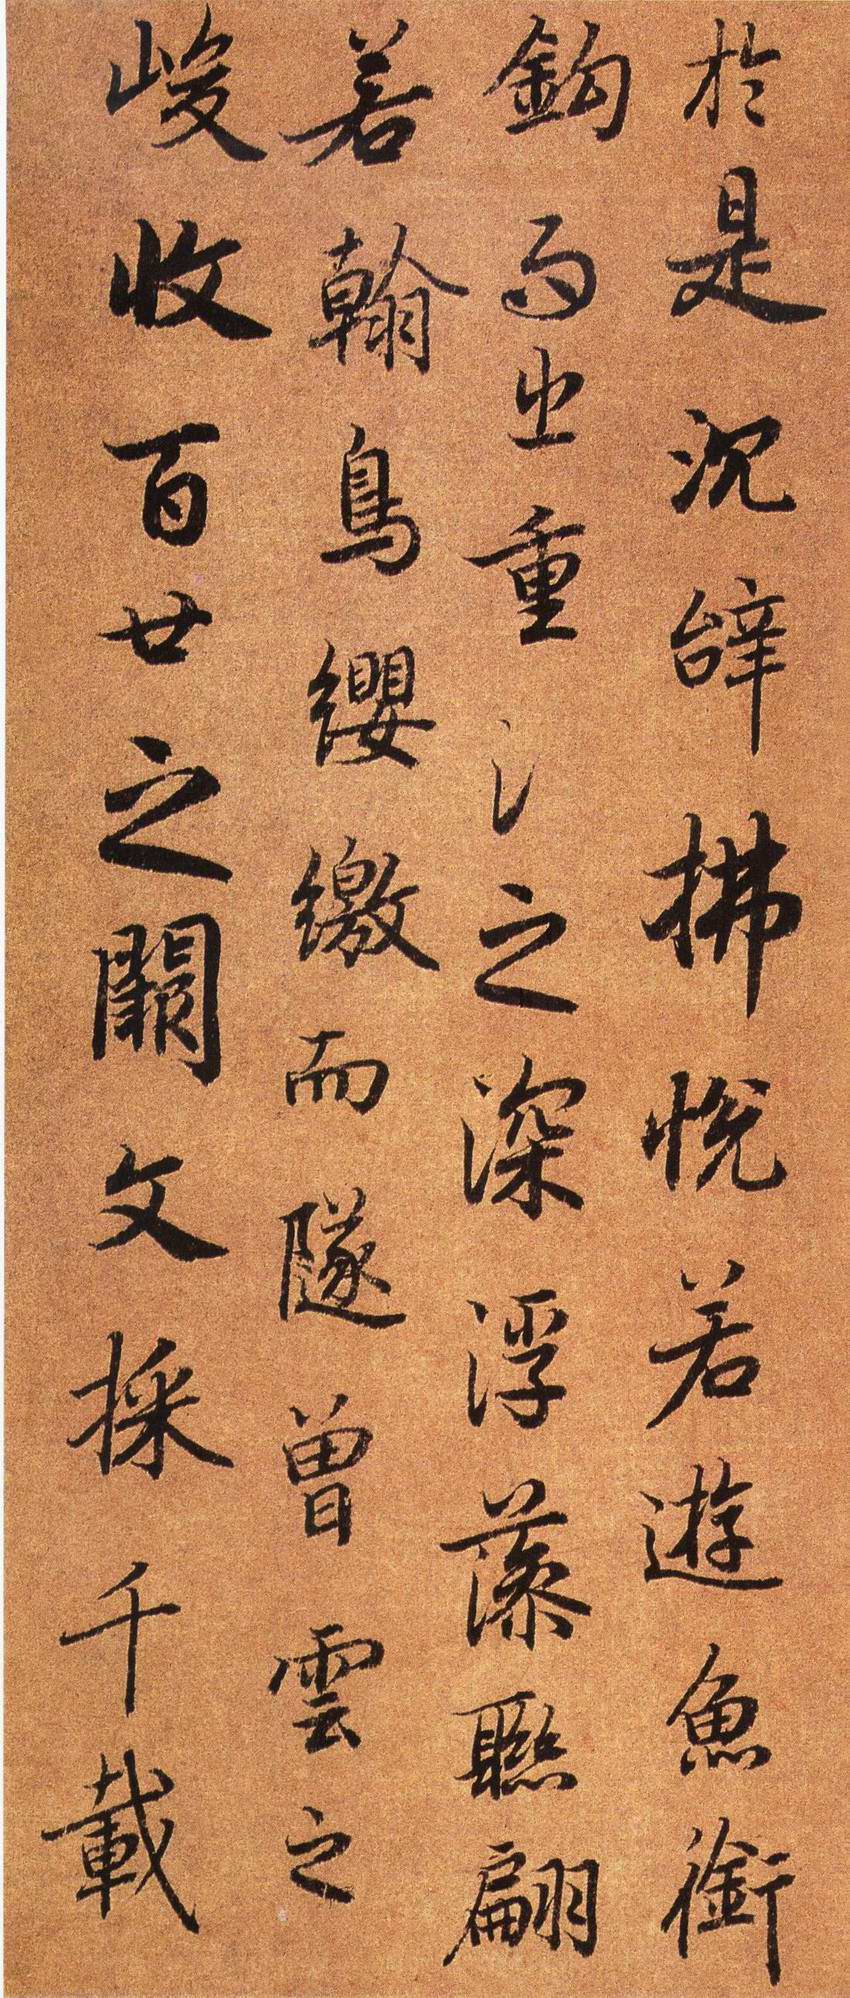 於是沉辝拂悅若遊魚銜
鈎而出重氵之深浮藻聯翩
若翰鳥纓繳而隧曾雲之
峻收百世之闕文採千載